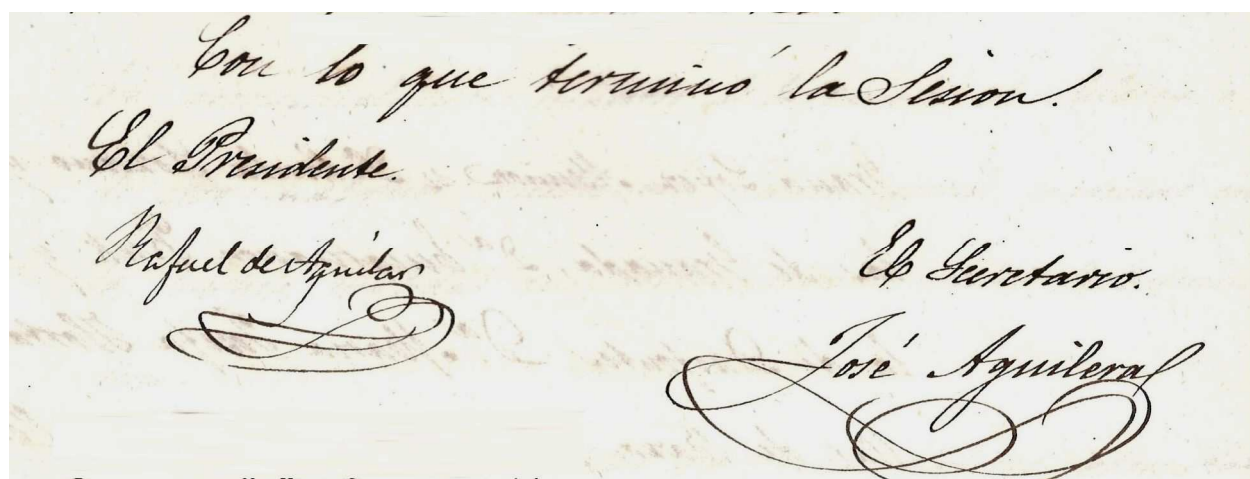 Con lo que terminó la Sesion.
El Presidente.
Rafael de Aguilar
El Secretario.
José Aguilera